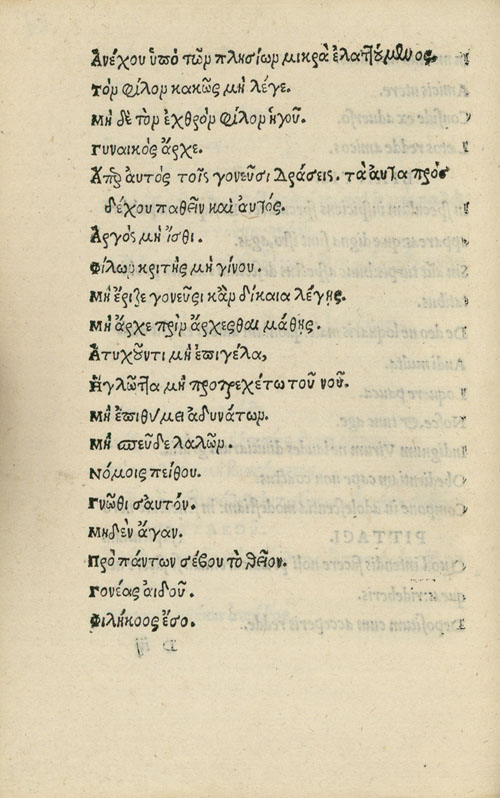 Ἀνέχου ὑπὸ τῶμ πλησίωμ μικρὰ ἐλαττούμενος.
τὸμ φίλομ κακῶς μὴ λέγε.
Μηδὲ τὸμ ἐχθρὸμ φίλομ ἡγοῦ.
Γυναικὸς ἄρχε.
Ἅπερ αὐτὸς τοῖς γονεῦσι δράσεις. τὰ αὐτὰ πρὸς
δέχου παθεῖν καὶ αὐτός.
Ἀργὸς μὴ ἴσθι.
Φίλωμ κριτὴς μὴ γίνου.
Μὴ ἔριζε γονεῦσι κἂμ δίκαια λέγῃς.
Μὴ ἄρχε πρὶμ ἄρχεσθαι μάθῃς.
Ἀτυχοῦντι μὴ ἐπιγέλα,
Ἡ γλῶττα μὴ προτρεχέτω τοῦ νοῦ.
Μὴ ἐπιθύμει ἀδυνάτωμ.
Μὴ σπεῦδε λαλῶμ.
Νόμοις πείθου.
Γνῶθι σαυτόν.
Μηδὲν ἄγαν.
Πρὸ πάντων σέβου τὸ θεῖον.
Γονέας αἰδοῦ.
Φιλήκοος ἔσο.